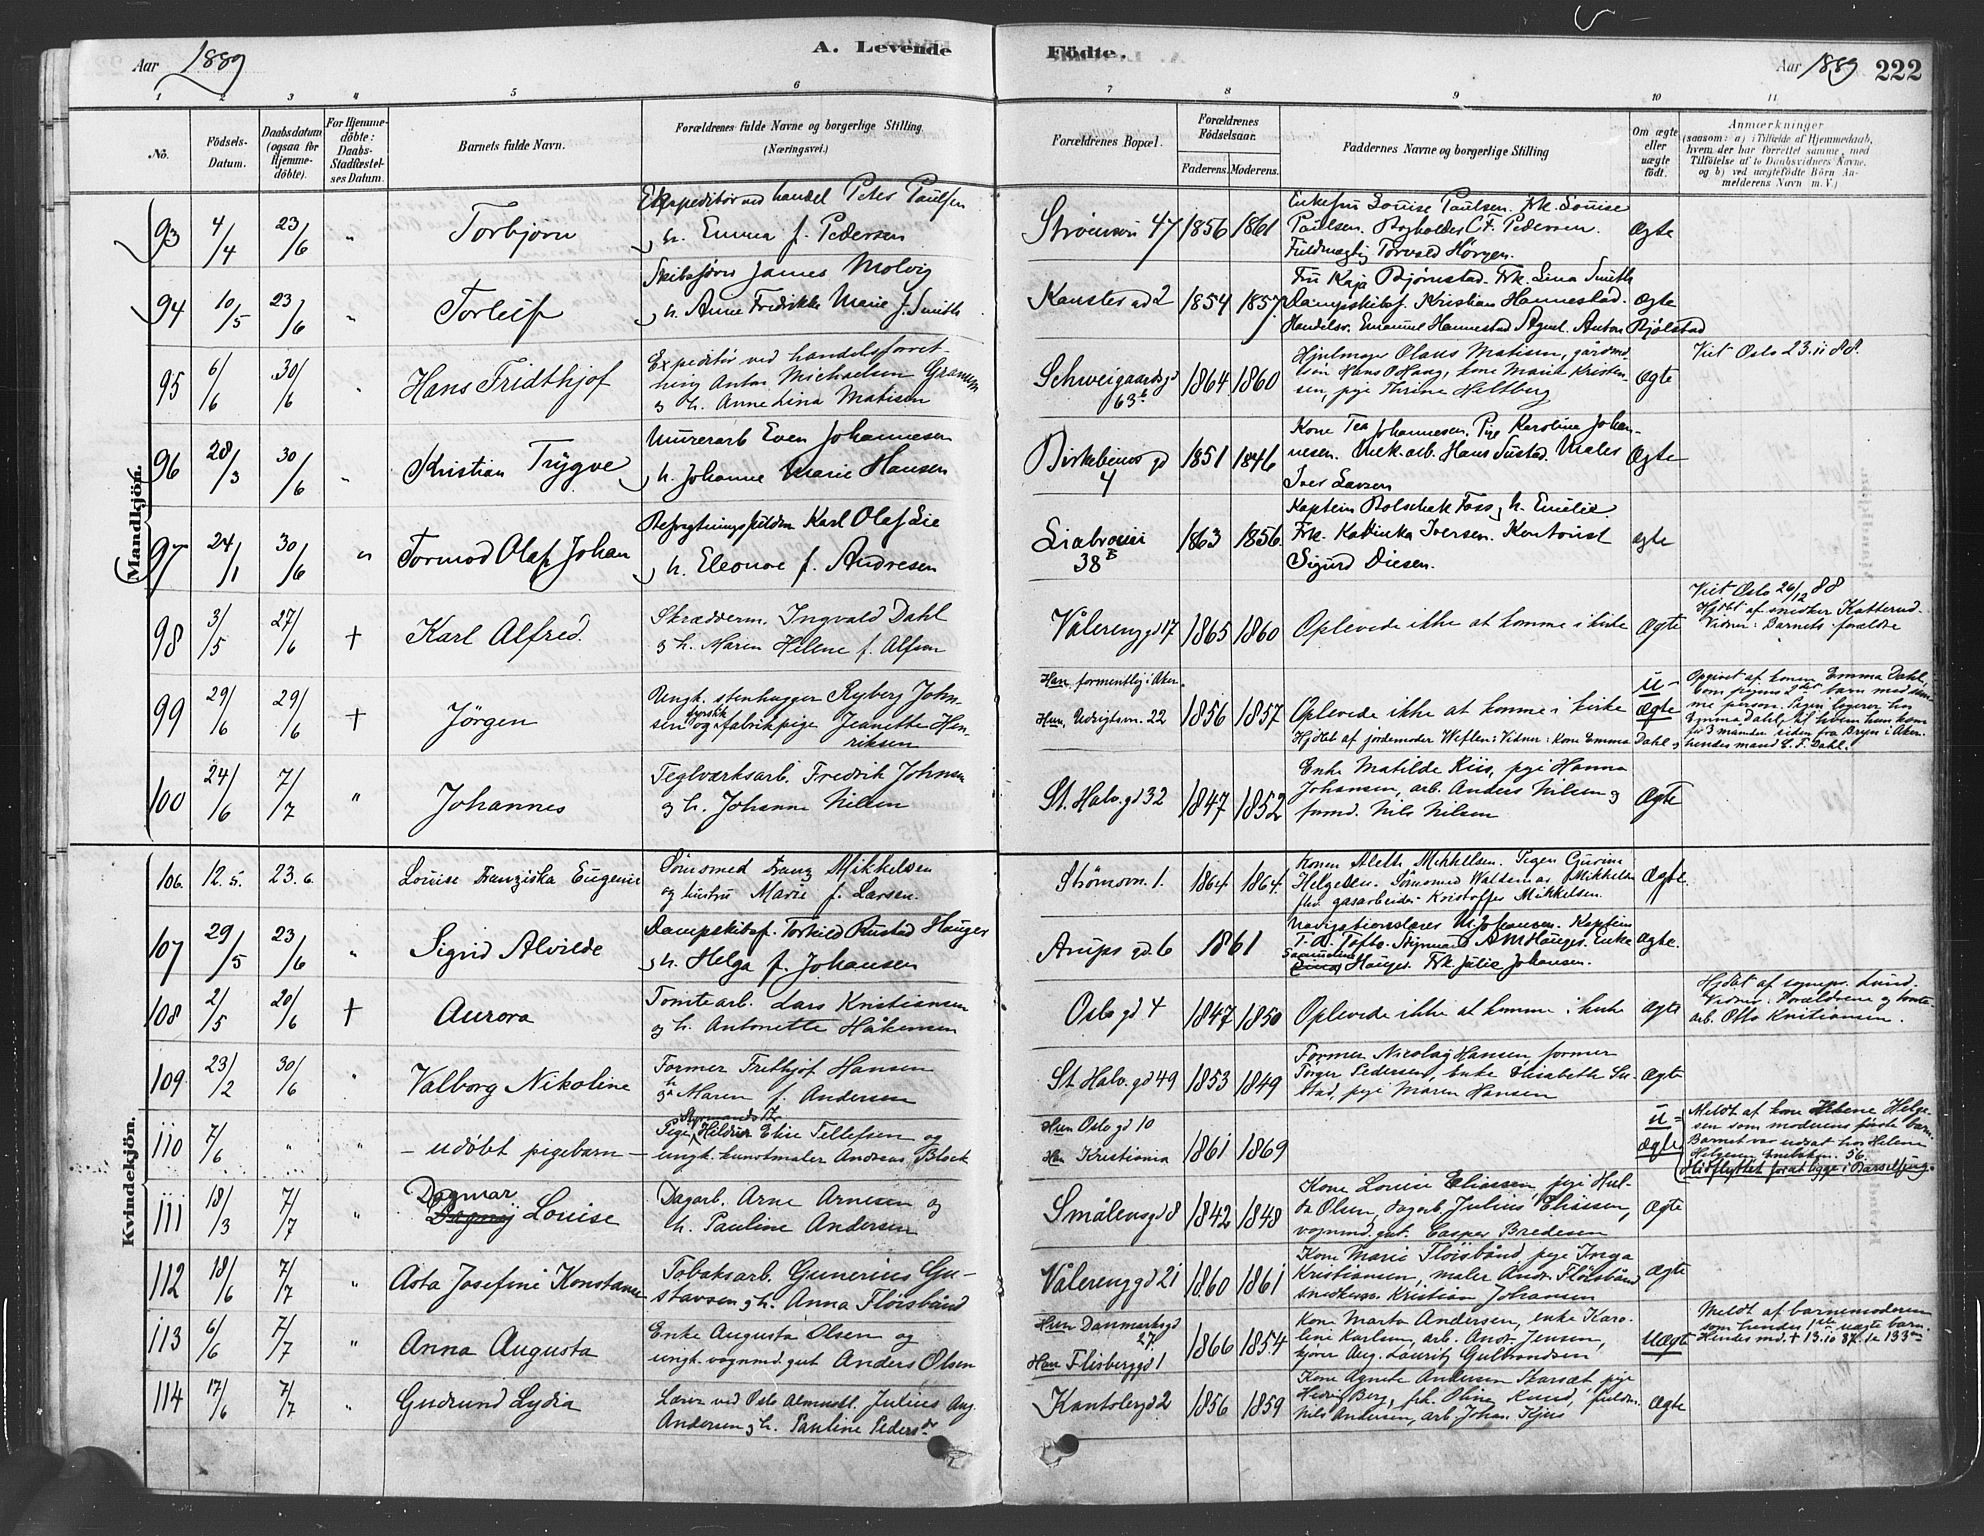 Aar 1889
A. Levende
Födte.
Aar 1889
222
1 2 3 4 5 6 7 8 9 10 11
No.
Födsels-
Datum.
Daabsdatum
(ogsaa for
Hjemme-
döbte).
For Hjemme-
döbte:
Daabs-
Stadfæstel-
ses Datum.
Barnets fulde Navn.
Forældrenes fulde Navne og borgerlige Stilling
(Næringsvei.)
Forældrenes Bopæl.
Forældrenes
Födselsaar.
Faderens. Moderens.
Faddernes Navne og borgerlige Stilling
Om ægte
eller
uægte
födt.
Anmærkninger
(saasom: a) i Tilfælde af Hjemmedaab,
hvem der har forrettet samme, med
Tilföielse af to Daabsvidners Navne,
og b) ved uægtefödte Börn An-
melderens Navn m. V.)
Mandkjön.
93 4/4 23/6 " Torbjørn
Expeditör ved handel Peter Paulsen
og h. Emma f. Pedersen
47 1856 1861
Enkefru Louise Paulsen. Frk. Louise
Paulsen. Bogholder C.F. Pedersen.
Fuldmægtig Torvald Hörgen.
Ægte
94 10/5 23/6 " Torleif
Skibsförer James Molvig
og h. Anne Fredrikke Marie f. Smith
2 1854 1857
Fru Kaja Bjørnstad. Frk. Lina Smith
Dampskibsf. Kristian Hannestad.
Handelsr. Emanuel Hannestad Agent. Anton Bjølstad
Ægte
95 6/6 30/6 " Hans Fridthjof
Expeditör ved handelsforret-
ning Anton Michaelsen
og h. Anne Lina Matisen
Schweigaardsgd
63b 1864 1860
Hjulmager Olaus Matisen, gårdmd.
Hans O Haug, kone Maria Kristen-
sen, pige Thrine Heltberg
Ægte
Viet Oslo 23.11 88.
96 28/3 30/6 " Kristian Trygve
Murerarb Even Johannesen
og h. Johanne Marie Hansen
Birkebeinergd
4 1851 1846
Kone Tea Johannesen. Pige Karoline Johan-
nesen. Mek. arb. Hans Sustad. Maler
Iver Larsen
Ægte
97 24/1 30/6 " Tormod Olaf Johan
Karl Olaf Lie
og h. Eleonore f. Andresen
Liabroveien
38B 1863 1856.
Kaptein Bolschak Foss, h. Emilie
Frk. Kadinka Iversen. Kontorist
Sigurd Diesen.
ægte
98 3/5 27/6 + Karl Alfred.
Skrædderm. Ingvald Dahl
og h. Maren Helene f. Alfsen
Vålerenggd 17 1865 1860
Oplevede ikke at komme i kirke
Ægte
Viet Oslo 26/12 88
Hjdöbt af snedker Katterud.
Vidner: Barnets forældre
99 29/6 29/6 + Jörgen
Ungk. stenhugger Ryberg John-
sen og fyrstik fabrikpige Jeanette Hen-
riksen
Han formentlig i Aker.
Hun, 22 1856 1857
Oplevede ikke at komme i kirke
Hjdöbt af jordemoder Weflen: Vidner: Kone Emma Dahl og
U-
ægte
Opgivet af konen Emma Dahl
som pigens 2det barn med sam-
me person. Pigen logerer hos
Emma Dahl, til hvem hun kom
for 3 maaneder siden fra Bryn i Aker.
hendes mand L. F. Dahl.
100 24/6 7/7 " Johannes
Teglværksarb. Fredrik Johnsen
og h. Johanne Nilsen
St. Halv. gd 32 1847 1852
Enke Matilde Riis, pige Hanna
Johansen, arb. Anders Nilsen og
formd. Nils Nilsen
Ægte
Kvindekjön.
106. 12.5. 23.6. Louise Franziska Eugenie
Sömsmed Franz Mikkelsen
og hustru Marie f. Larsen.
Strömsv. 1. 1864. 1864.
Konen Aleth Mikkelsen. Pigen Gurine
Helgesen. Sömsmed Waldemar Mikkelsen
gasarbeider Kristoffer Mikkelsen.
Ægte.
107 29/5 23/6 " Sigrid Alvilde
Dampskibsf. Torkild Rustad Hauger
og h. Helga f. Johansen
Arups gd. 6 1861
Navigationslærer Johansen. Kaptein
T. A. Tofte. Styrmand A M Hauger. Enke
Hauger. Frk. Julie Johansen.
ægte.
108 2/5 20/6 + Aurora
Tomtearb. Lars Kristiansen
og h. Antonette Håkensen
Oslo gd 4 1847 1850
Oplevede ikke at komme i kirke
ægte
Hjdöbt af sognepr. Lund.
Vidner: Forældrene og tomte-
arb. Otto Kristiansen.
109 23/2 30/6 " Valborg Nikoline
Former Frithjof Hansen
og h Maren f. Andersen
St Halv. gd 49 1853 1849
Former Nicolay Hansen, former
Törger Pedersen, Enke Elisabeth Su-
stad, pige Maren Hansen
Ægte
110 7/6 " " - udöbt pigebarn -
Pige, Styrmands D. Hildur Elise Tellefsen og
ungk. kunstmaler Andreas Block
Hun Oslo gd 10
Han Kristiania 1861 1869
U-
ægte
Meldt af kone Helene Helge-
sen som moderens förste barn.
Barnet var udsat hos Helene
Helgesen 56.
Hidflyttet for at ligge i Barselseng.
111 18/3 7/7 " Dagmar Louise
Dagarb. Arne Arnesen og
h. Pauline Andersen
Smålensgd 8 1842 1848
Kone Louise Eliassen, pige Hul-
da Olsen, dagarb. Julius Eliassen,
vognmd. gut. Casper Bredesen
Ægte
112 18/6 7/7 " Asta Josefine Konstance
Tobaksarb. Gunerius Gu-
stavsen og h. Anna Flöisbånd
Vålerenggd 21 1860 1861
Kone Marie Flöisbånd pige Inga
Kristiansen, maler Andr. Flöisbånd
Kristian Johansen
Ægte
113 6/6 7/7 " Anna Augusta
Enke Augusta Olsen og
ungk. vognmd. gut Anders Olsen
Hun Danmarksgd
27.
Han Flisberggd 1 1866 1854
Kone Marta Andersen, enke Karo-
line Karlsen, arb. Andr. Jensen,
kjörer Aug. Lauritz Gulbrandsen
Uægte
Meldt af barnemoderen
som hendes 1ste uægte barn.
Hendes md. + 13.10 87.
114 17/6 7/7 " Gudrund Lydia
Lærer ved Oslo Almuskl. Julius Aug.
Andersen og h. Pauline Pedersdr
Kantslergd 2 1856 1859
Kone Agnete Andersen Skarsæt pige
Hedvig Berg, frk. Oline Rund,
Nils Andersen, arb. Johan Kjus
Ægte